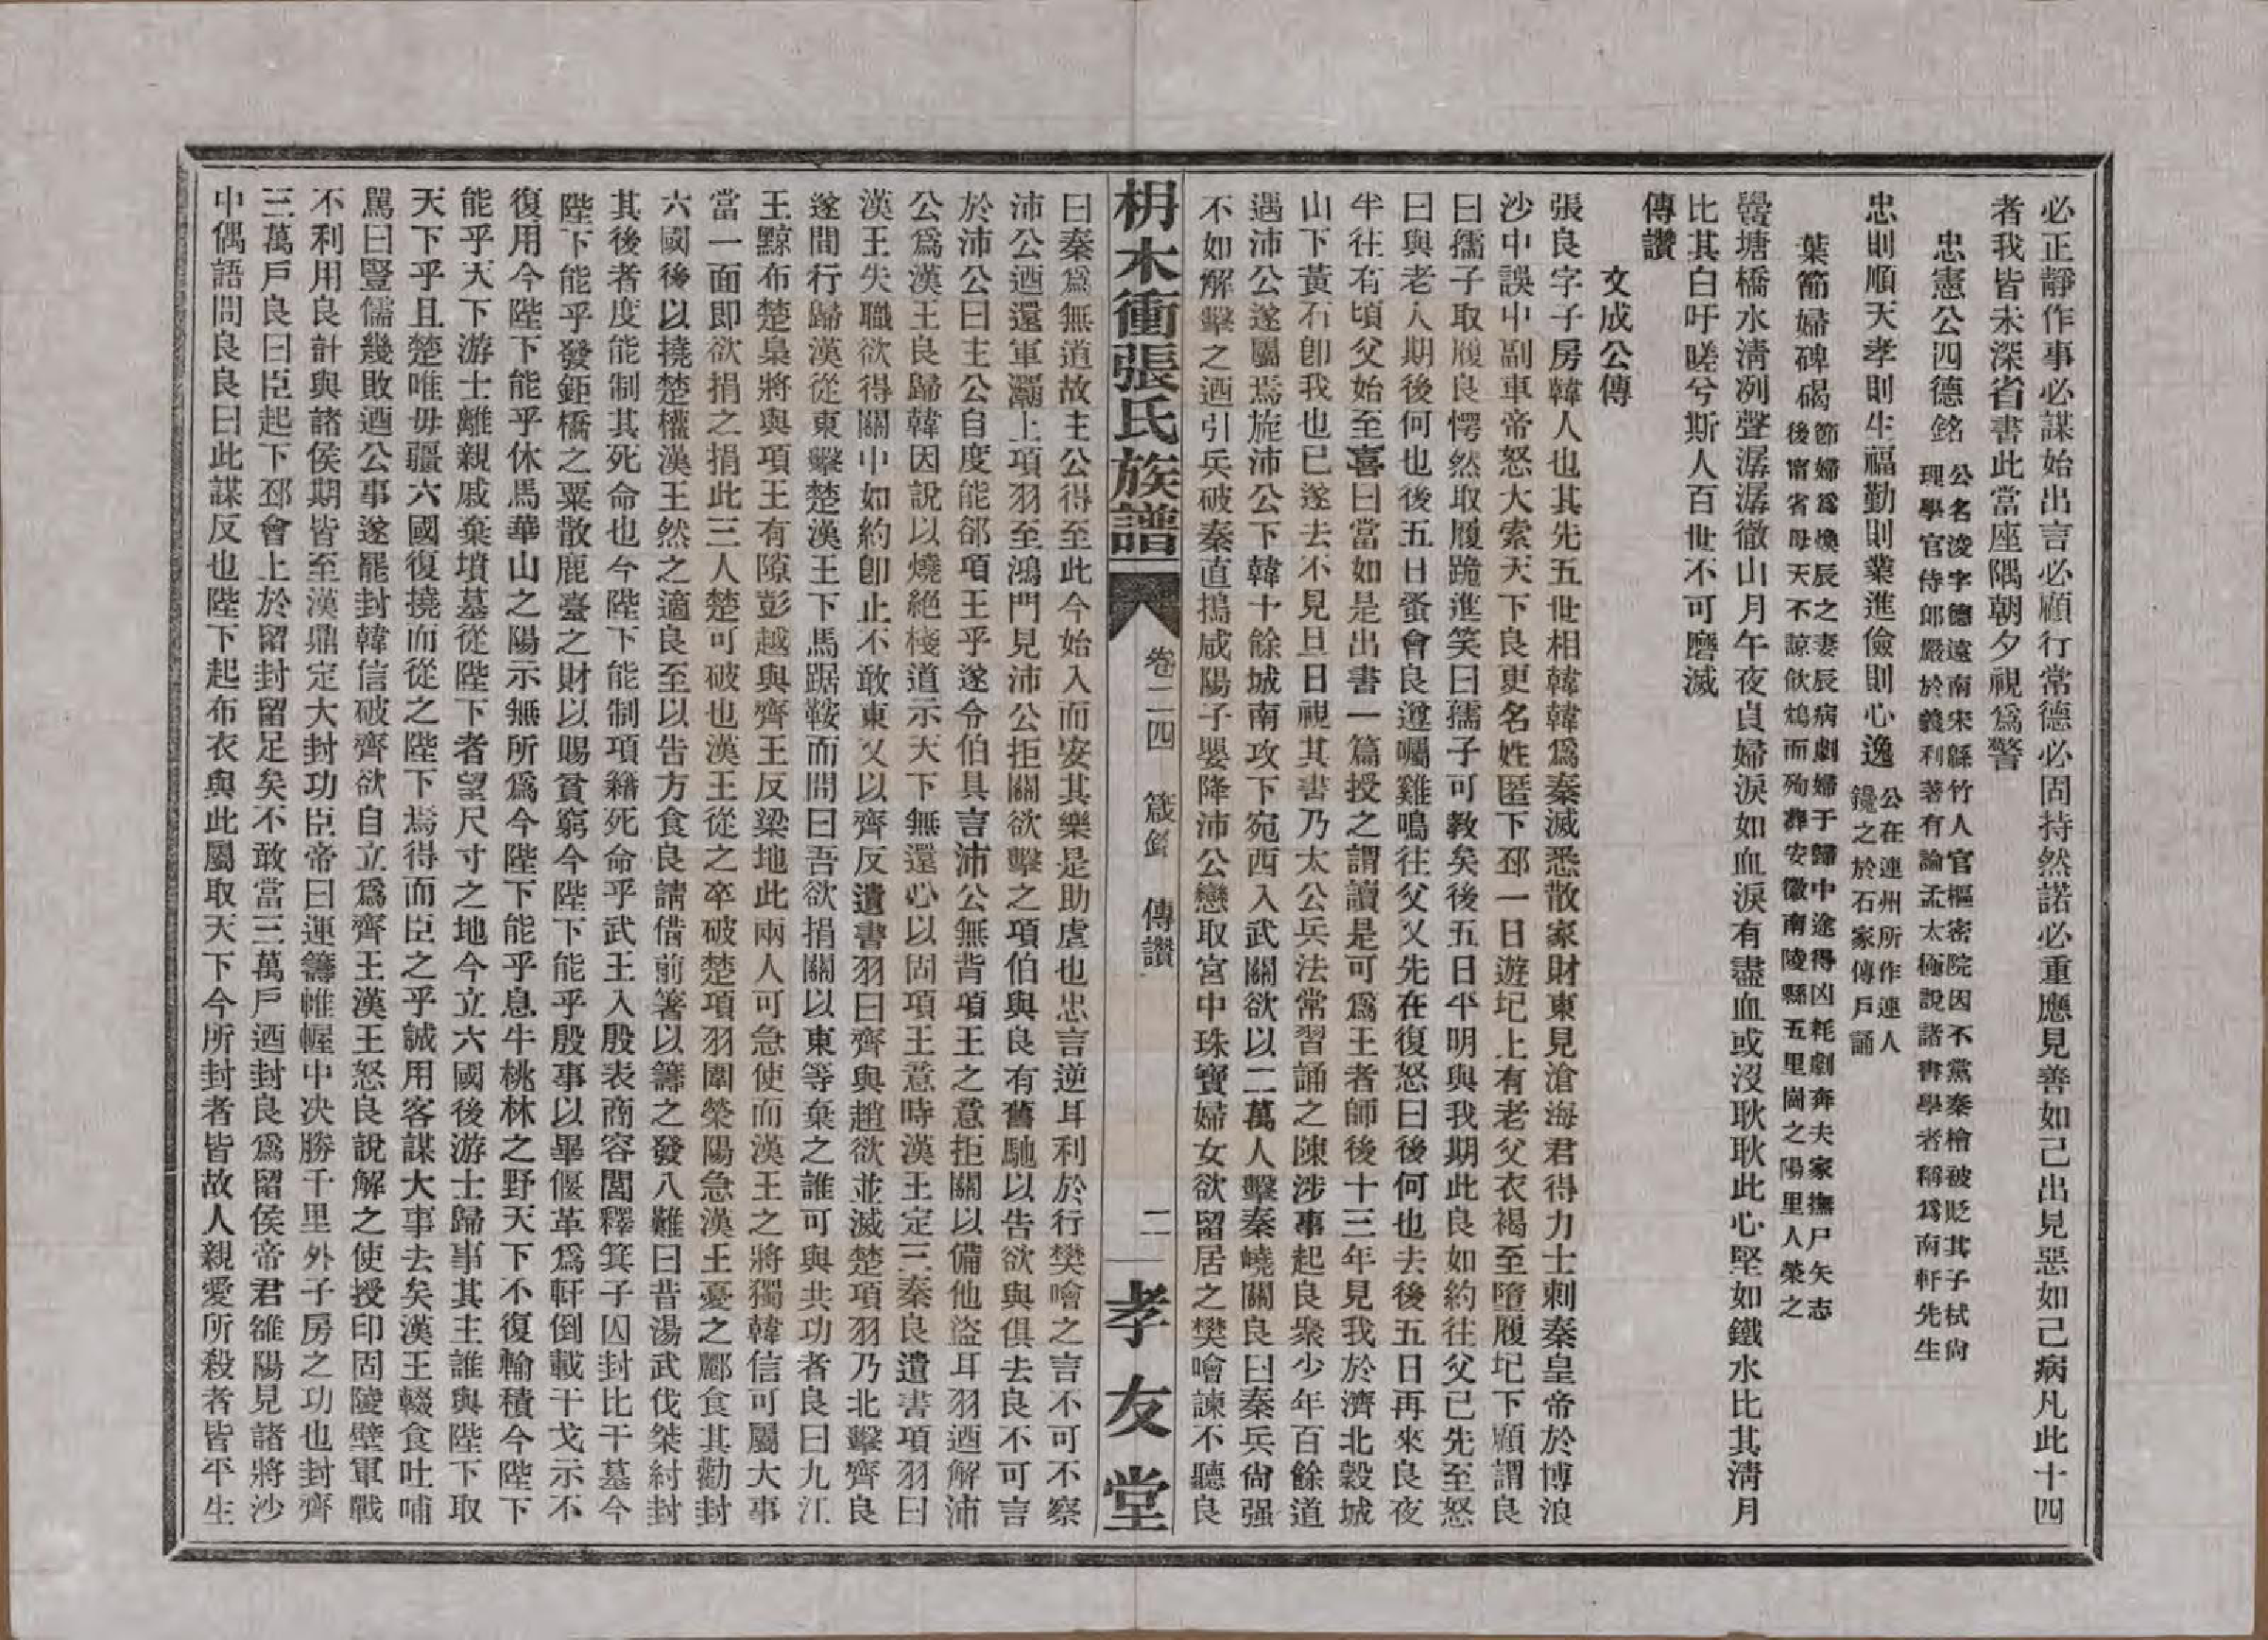 必正靜作事必謀始出言必顧行常德必固持然諾必重應見善如己出見惡如己病凡此十四
者我皆未深省書此當座隅朝夕視爲警
忠憲公四德銘
公名浚字德遠南宋緜竹人官樞密院因不黨秦檜被貶其子栻尙
理學官侍郎嚴於義利著有論孟太極說諸書學者稱爲南軒先生
忠則順天孝則生福勤則業進儉則心逸
公在連州所作連人
鑱之於石家傳戶誦
葉節婦碑碣
節婦爲煥辰之妻辰病劇婦于歸中途得凶耗劇奔夫家撫尸矢志
後甯省母天不諒飮鴆而殉葬安徽南陵縣五里崗之陽里人榮之
鸒塘橋水淸冽聲潺潺徹山月午夜貞婦淚如血淚有盡血或沒耿耿此心堅如鐵水比其淸月
比其白吁嗟兮斯人百世不可磨滅
傳讚
文成公傳
張良字子房韓人也其先五世相韓韓爲秦滅悉散家財東見滄海君得力士刺秦皇帝於博浪
沙中誤中副車帝怒大索天下良更名姓匿下邳一日遊圯上有老父衣褐至墮履圯下顧謂良
曰孺子取履良愕然取履跪進笑曰孺子可教矣後五日平明與我期此良如約往父已先至怒
曰與老人期後何也後五日蚤會良遵囑雞鳴往父又先在復怒曰後何也去後五日再來良夜
半往有頃父始至喜曰當如是出書一篇授之謂讀是可爲王者師後十三年見我於濟北穀城
山下黃石卽我也已遂去不見旦日視其書乃太公兵法常習誦之陳涉事起良聚少年百餘道
遇沛公遂屬焉旋沛公下韓十餘城南攻下宛西入武關欲以二萬人擊秦嶢關良曰秦兵尙强
不如解擊之迺引兵破秦直搗咸陽子嬰降沛公戀取宮中珠寶婦女欲留居之樊噲諫不聽良
枬木衝張氏族譜
卷二四
箴銘
傳讚
二
孝友堂
曰秦爲無道故主公得至此今始入而安其樂是助虐也忠言逆耳利於行樊噲之言不可不察
沛公迺還軍灞上項羽至鴻門見沛公拒關欲擊之項伯與良有舊馳以告欲與俱去良不可言
於沛公曰主公自度能郤項王乎遂令伯具言沛公無背項王之意拒關以備他盜耳羽迺解沛
公爲漢王良歸韓因說以燒絕棧道示天下無還心以固項王意時漢王定三秦良遺書項羽曰
漢王失職欲得關中如約卽止不敢東又以齊反遺書羽曰齊與趙欲並滅楚項羽乃北擊齊良
遂間行歸漢從東擊楚漢王下馬踞鞍而問曰吾欲捐關以東等棄之誰可與共功者良曰九江
王黥布楚梟將與項王有隙彭越與齊王反梁地此兩人可急使而漢王之將獨韓信可屬大事
當一面即欲捐之捐此三人楚可破也漢王從之卒破楚項羽圍滎陽急漢王憂之酈食其勸封
六國後以撓楚權漢王然之適良至以告方食良請借前箸以籌之發八難曰昔湯武伐桀紂封
其後者度能制其死命也今陛下能制項籍死命乎武王入殷表商容閭釋箕子囚封比干墓今
陛下能乎發鉅橋之粟散鹿臺之財以賜貧窮今陛下能乎殷事以畢偃革爲軒倒載干戈示不
復用今陛下能乎休馬華山之陽示無所爲今陛下能乎息牛桃林之野天下不復輸積今陛下
能乎天下游士離親戚棄墳墓從陛下者望尺寸之地今立六國後游士歸事其主誰與陛下取
天下乎且楚唯毋疆六國復撓而從之陛下焉得而臣之乎誠用客謀大事去矣漢王輟食吐哺
罵曰豎儒幾敗迺公事遂罷封韓信破齊欲自立爲齊王漢王怒良說解之使授印固陵壁軍戰
不利用良計與諸侯期皆至漢鼎定大封功臣帝曰運籌帷幄中決勝千里外子房之功也封齊
三萬戶良曰臣起下邳會上於留封留足矣不敢當三萬戶迺封良爲留侯帝君雒陽見諸將沙
中偶語問良良曰此謀反也陛下起布衣與此屬取天下今所封者皆故人親愛所殺者皆平生